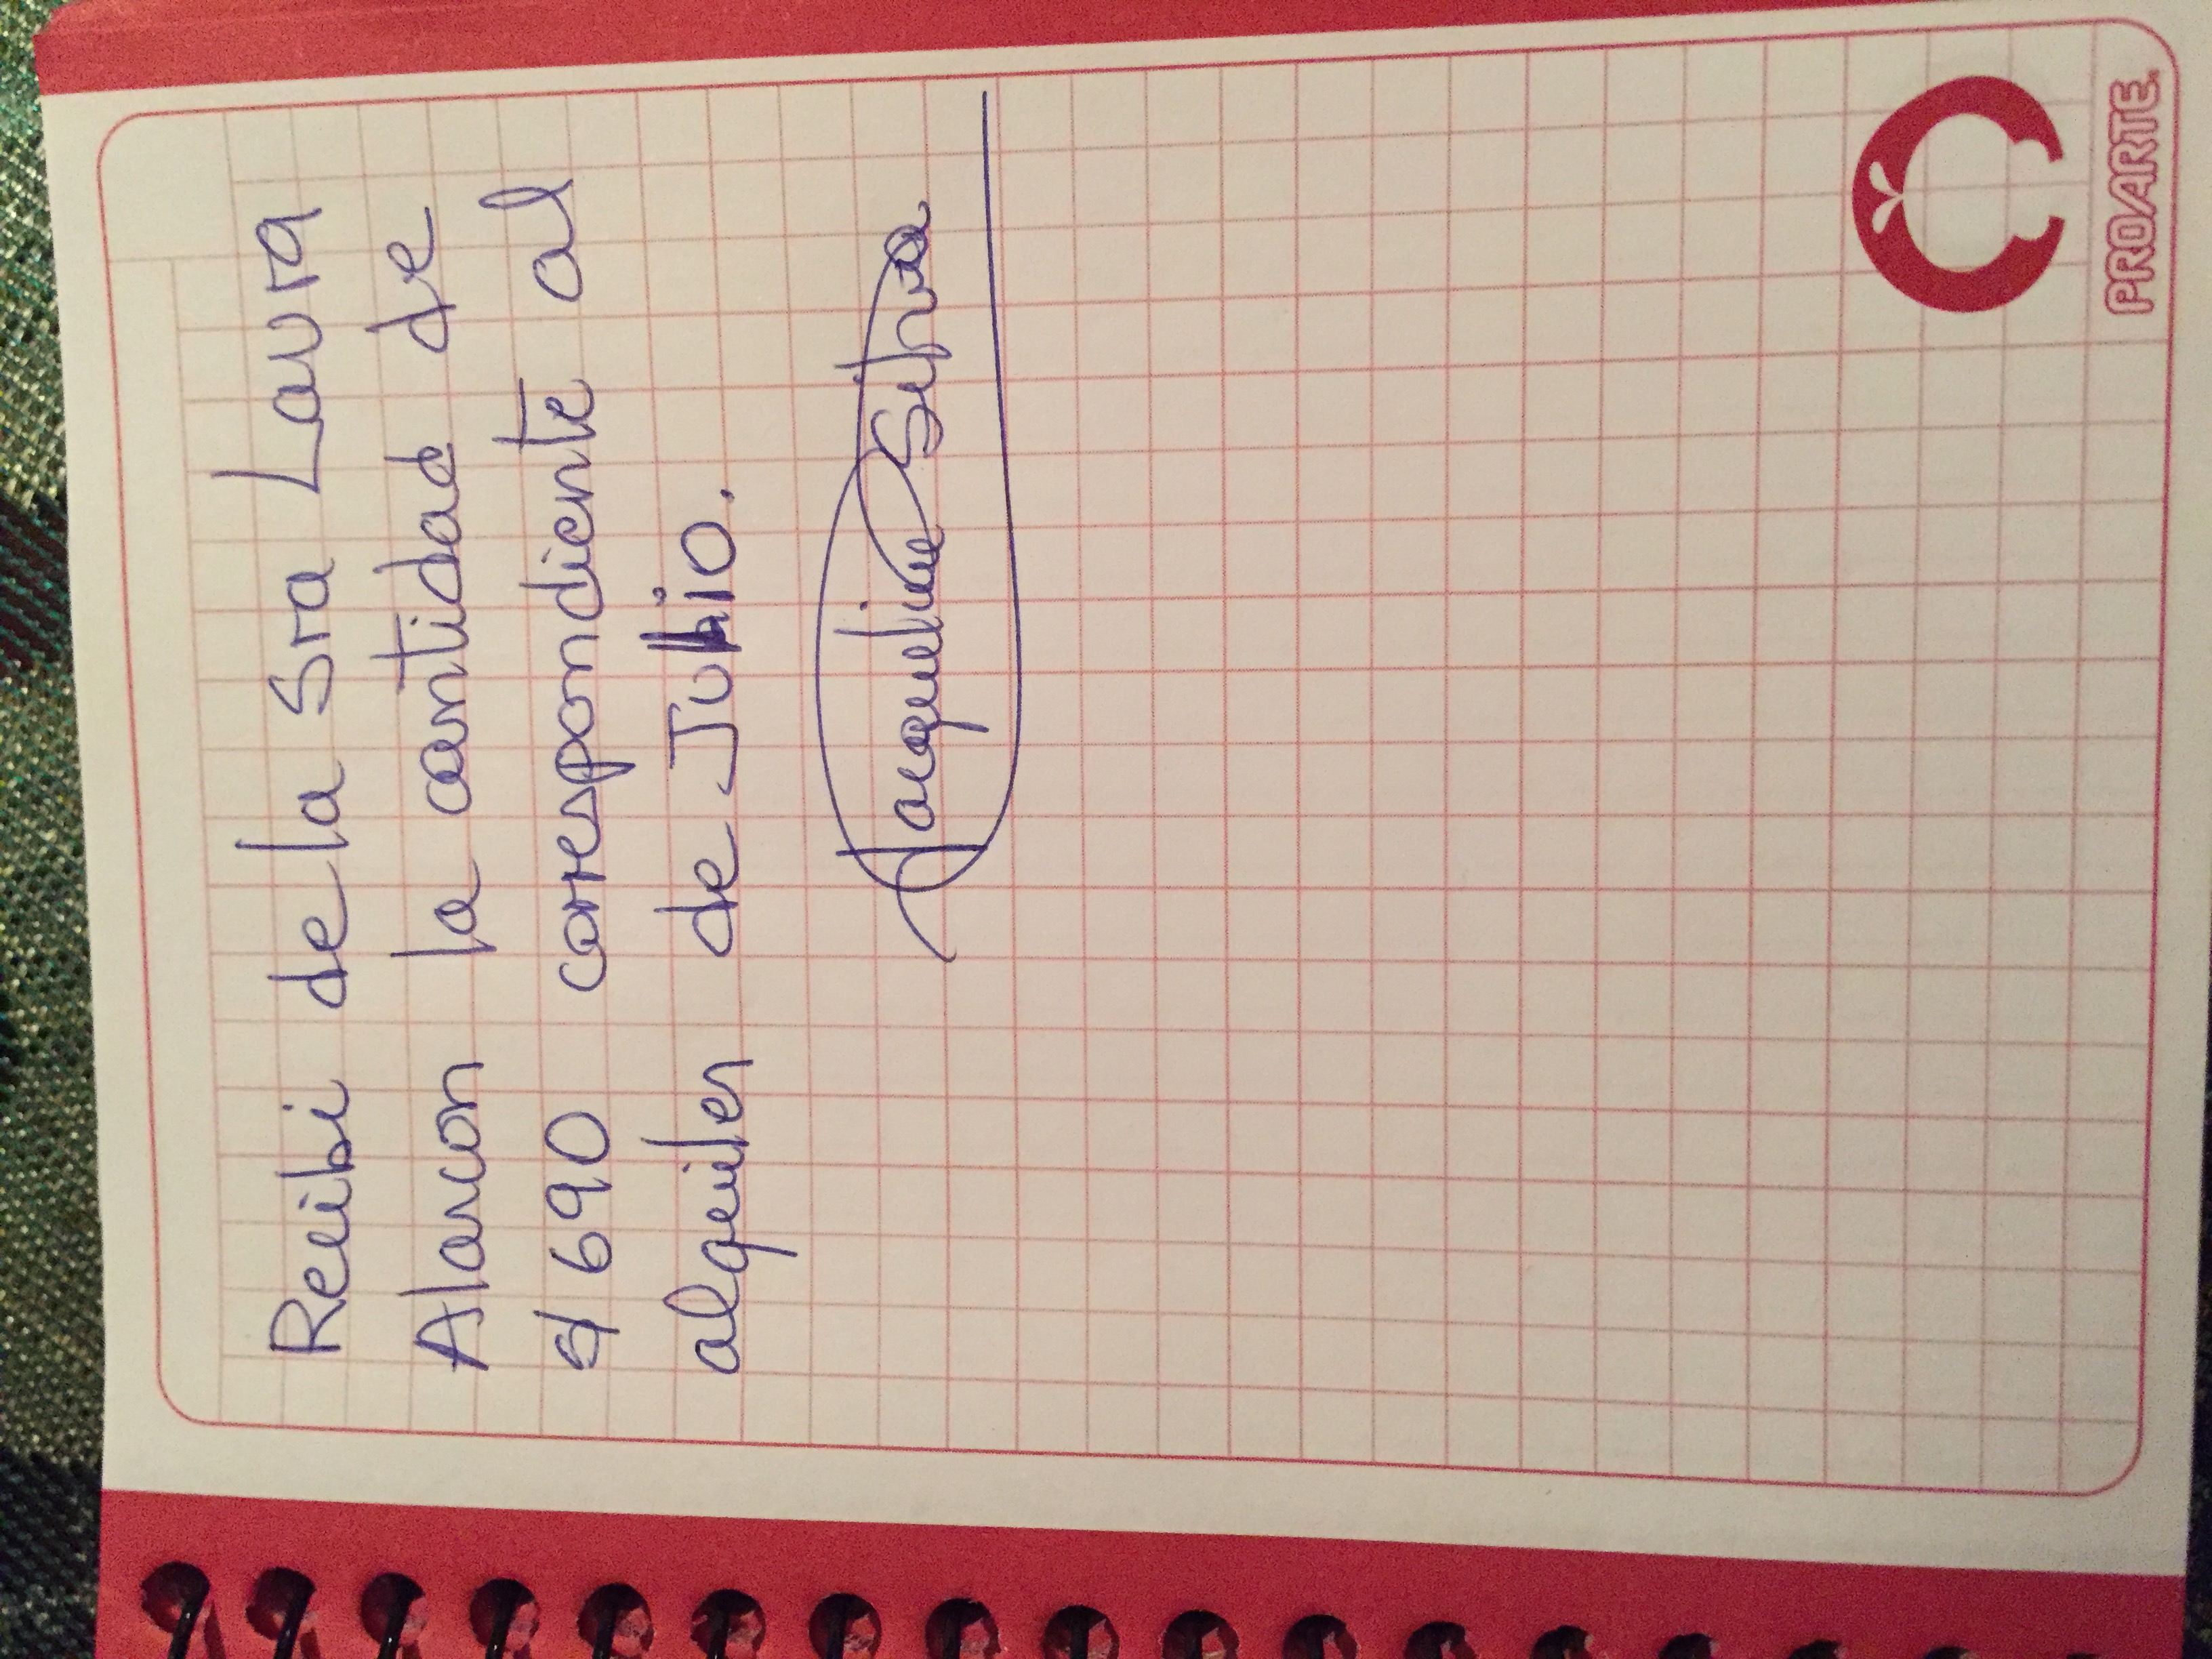 Recibi de la Sra Laura
Alarcon la cantidad de
s/ 690 correspondiente al
alquiler de Julio.
Jacqueline Silva
PRO/ARTE